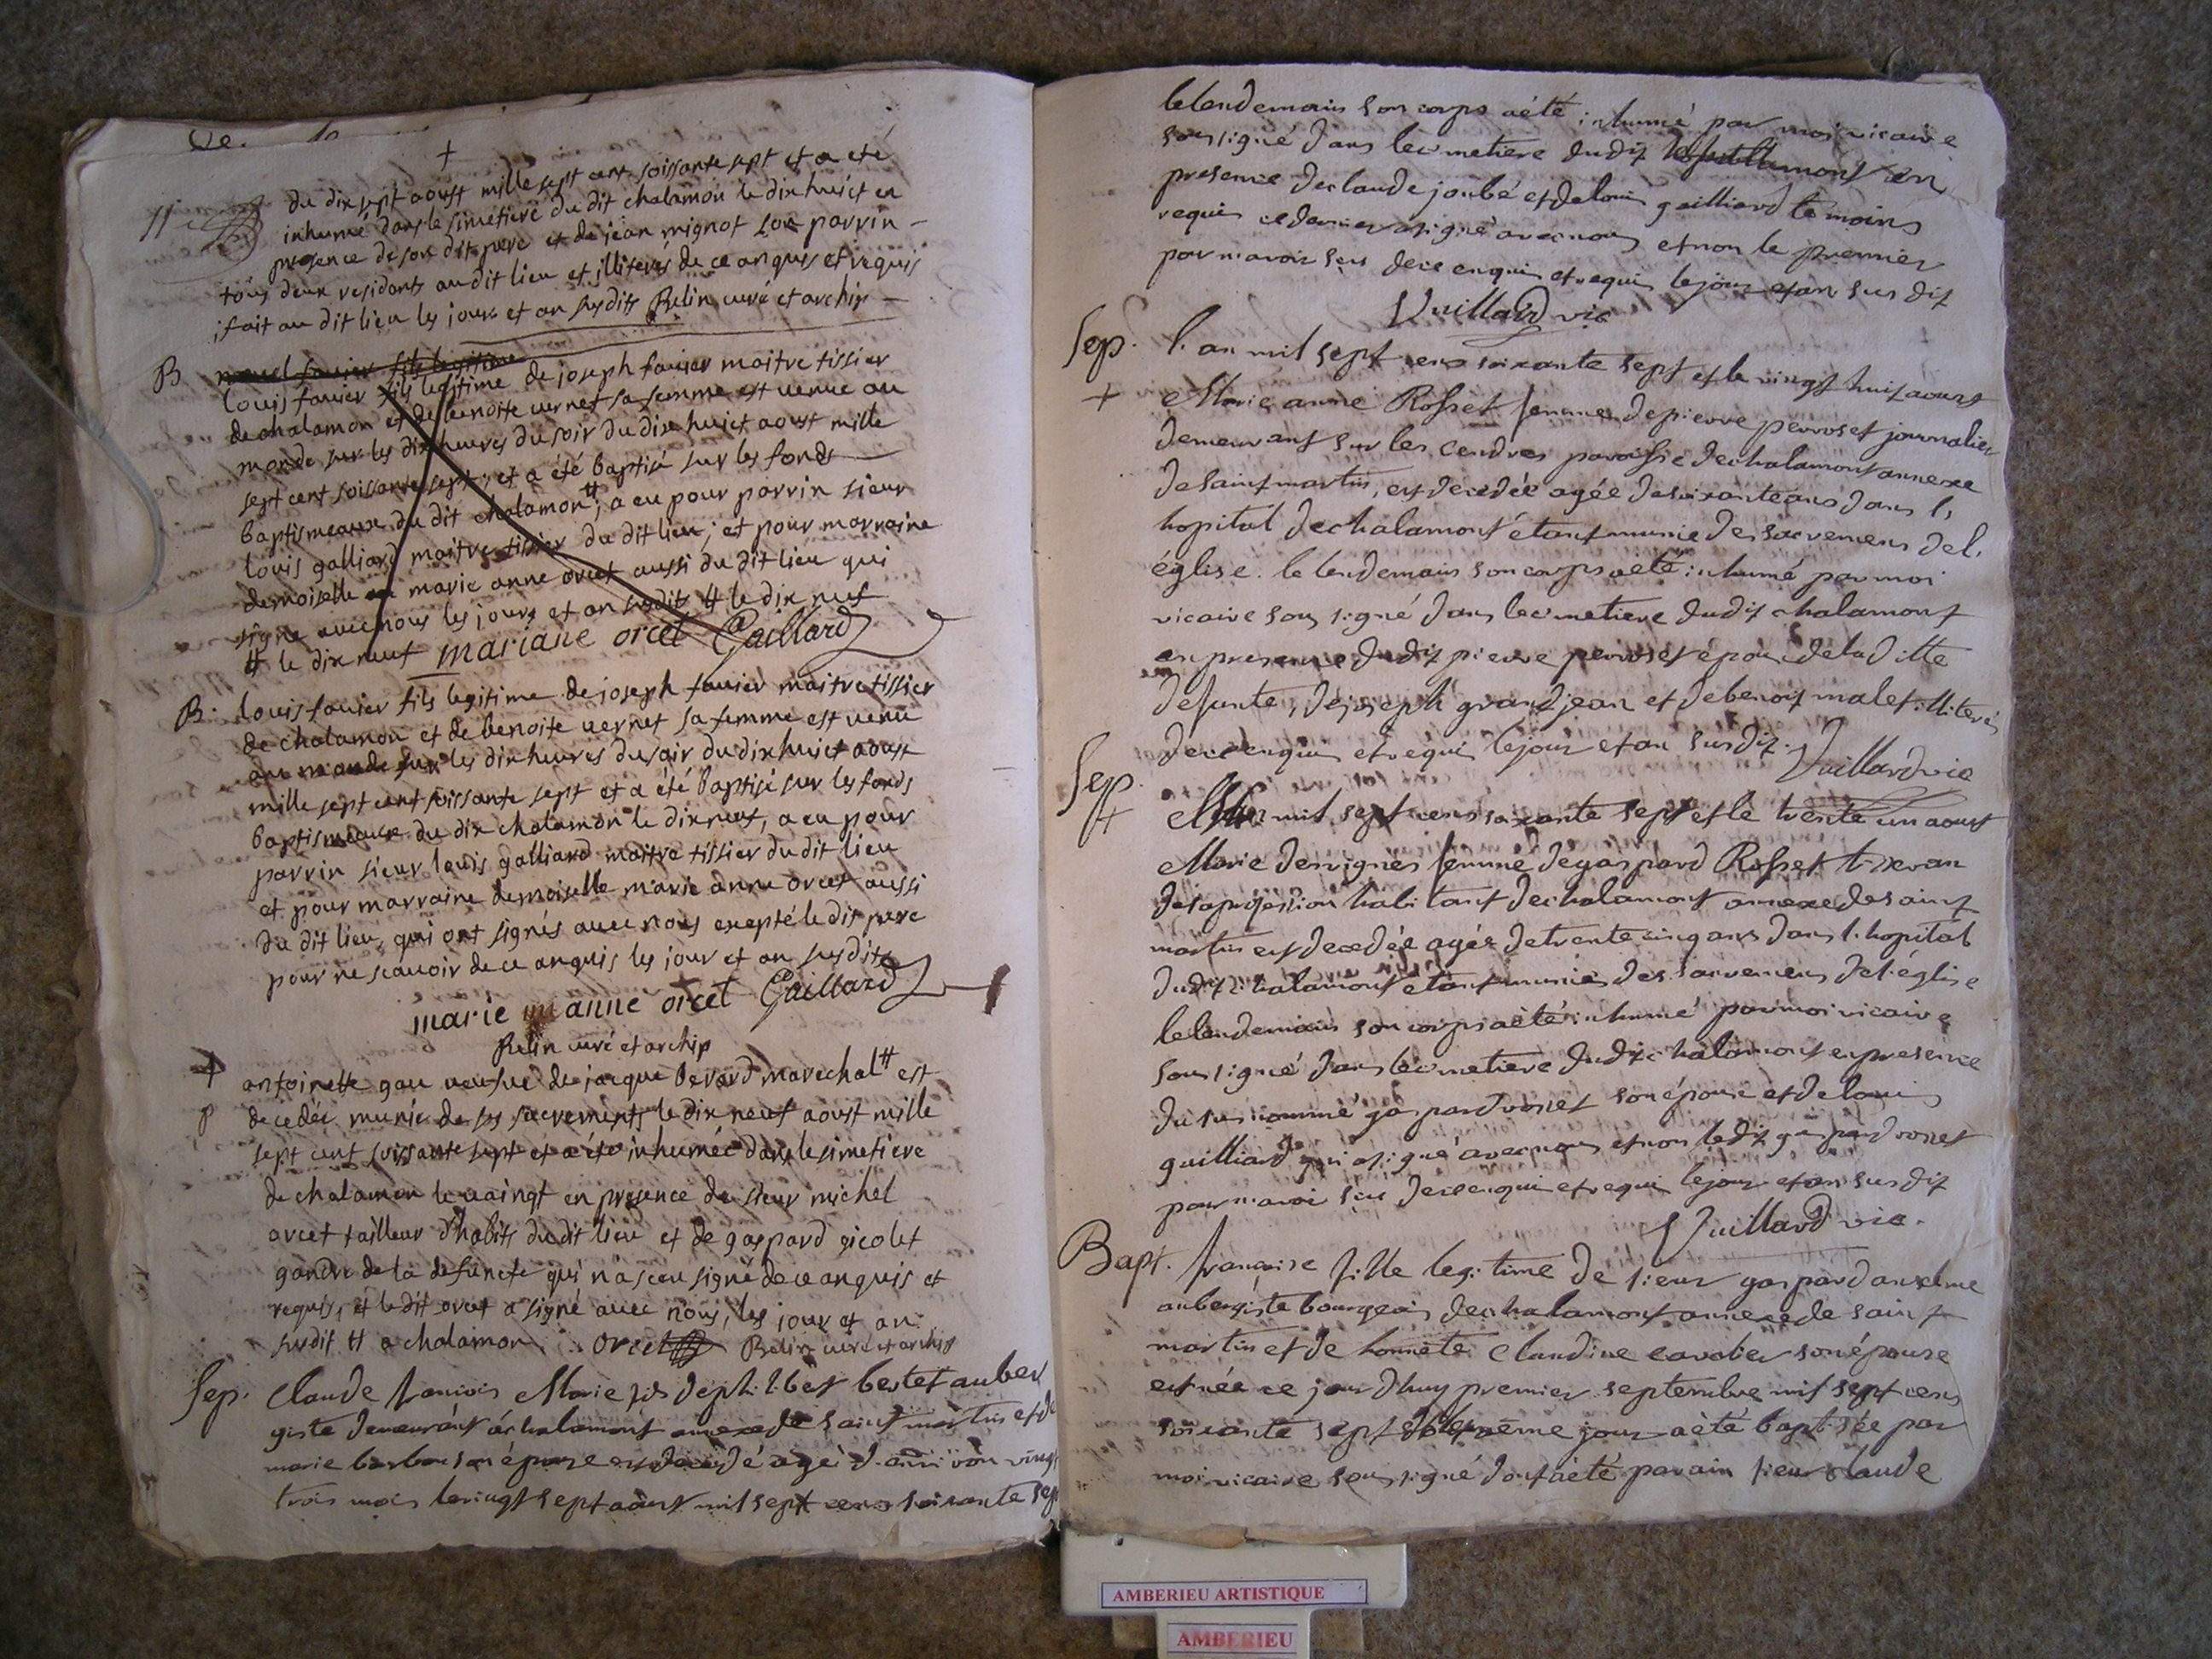 du dix sept aoust mille sept cent soissante sept et a eté
inhumé dans le simetiere du dit chalamon le dix huict en
presence de son dit pere et de jean mignot son parrin
tous deux residants au dit lieu et illiterés de ce anquis et requis
fait au dit lieu les jours et an susdits Belin curé et archip
B
louis fauier fils legitime de joseph fauier maitre tissier
de chalamon et de benoite vernet sa femme est venue au
monde sur les dix heures du soir du dix huict aoust mille
sept cent soissante sept, et a été baptisé sur les fonds
baptismeaux du dit chalamon #, a eu pour parrin sieur
louis galliard maitre tissier du dit lieu; et pour marraine
demoiselle marie anne orcet aussi du dit lieu qui
signe avec nous les jours et an susdits # le dix neuf
# le dix neuf mariane orcet Gaillard
B. louis fauier fils legitime de joseph fauier maitre tissier
de chalamon et de benoite vernet sa femme est venu
au monde sur les dix heures du soir du dix huict aoust
mille sept cent soissante sept et a été baptisé sur les fonds
baptismeaux du dit chalamon le dix neuf, a eu pour
parrin sieur louis galliard maitre tissier du dit lieu
et pour marraine demoiselle marie anne orcet aussi
du dit lieu, qui ont signés avec nous excepté le dit pere
pour ne scavoir de ce anquis les jour et an susdits
marie anne orcet Gaillard
Belin curé et archip
+ antoinette gau veufue de jacque berard marechal # est
decedée munie de ses sacrements le dix neuf aoust mille
sept cent soissante sept et a été inhumée dans le simetiere
de chalamon le vaingt en presence de sieur michel
orcet tailleur d'habits du dit lieu et de gaspard nicolet
gandre de la defuncte qui n'a sceu signé de ce anquis et
requis, et le dit orcet a signé avec nous, les jour et an
susdit # a chalamon orcet Belin curé et archip
Sep. Claude francois Marie fils de philibert bertet auber
giste demeurant à chalamont annexe de saint martin et de
marie barbou son épouse est decedé agé d'environ vingt
trois mois le vingt sept aoust mil sept cens soixante sept
le lendemain son corps aété inhumé par moi vicaire
soussigné dans le cimetiere dudit en
presence de claude joubé et de louis gailliard témoins
requis ce dernier a signé avec nous et non le premier
pour n'avoir sçu de ce enquis et requis le jour et an sus dit
Vuillard vic
Sep. l'an mil sept cens soixante sept et le vingt huit aoust
+ Marie anne Rosset femme de pierre perroset journalier
demeurant sur les cendres paroissie de chalamont annexe
de saint martin, est decedée agée de soixante ans dans l'
hopital de chalamont étant munie des sacremens de l'
église. le lendemain son corps aété inhumé par moi
vicaire sous signé dans le cimetiere dudit chalamont
en presence dudit pierre perroset époux de la ditte
defunte, de joseph grandjean et de benoit malet illiterés
de ce enquis et requis le jour et an susdit. Vuillard vic
Sep.
+ mil sept cens soixante sept et le trente un aoust
Marie desvignes femme de gaspard Rosset tixeran
de sa profession habitant de chalamont annexe de saint
martin est decedée agée de trente cinq ans dans l'hopital
dudit chalamont étant munie des sacremens de l'église
le lendemain son corps aété inhumé par moi vicaire
sous signé dans le cimetiere dudit chalamont en presence
du susnommé gaspard rosset son épouse et de louis
guilliard qui a signé avec nous et non ledit gaspard rosset
pour n'avoir sçu de ce enquis et requis le jour et an sus dit
Vuillard vic.
Bapt. francoise fille legitime de sieur gaspard anselme
aubergiste bourgeois de chalamont annexe de saint
martin et de honnete Claudine cavalier son épouse
est née ce jour d'huy premier septembre mil sept cens
soixante sept et le même jour aété baptisée par
moi vicaire sous signé dont aété parain sieur claude
AMBERIEU ARTISTIQUE
AMBERIEU